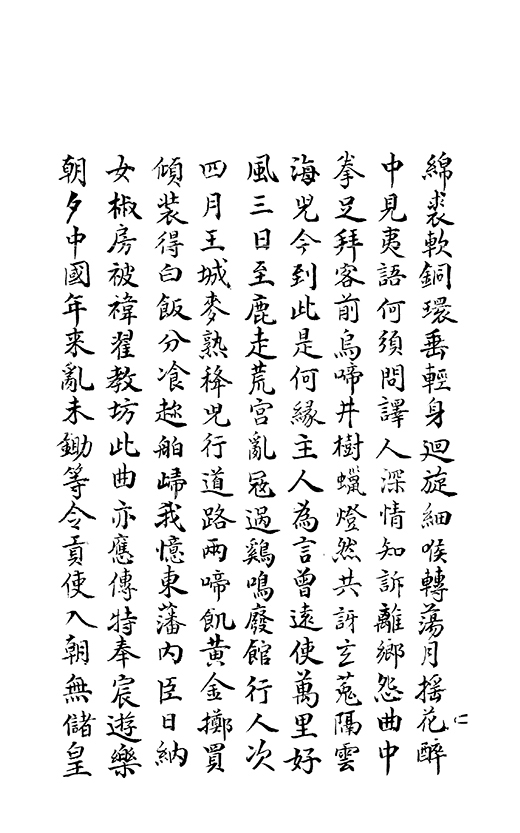 綿裘軟銅環垂輕身迴旋細喉轉蕩月搖花醉
中見夷語何須問譯人深情知訴離鄉怨曲中
拳足拜客前烏啼井樹蠟燈然共訝玄菟隔雲
海兒今到此是何緣主人為言曾遠使萬里好
風三日至鹿走荒宮亂冦過鷄鳴廢館行人次
四月王城麥熟稀兒行道路兩啼飢黃金擲買
傾裝得白飯分飡趂舶歸我憶東藩內臣日納
女椒房被褘翟教坊此曲亦應傳特奉宸遊樂
朝夕中國年來亂未鋤等令貢使入朝無儲皇